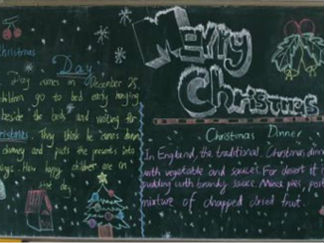 Christmas
Day
Day comes on December 25,
children go to bed early
beside the beds and waiting for
Christmas. They think he comes down
chimney and puts the presents into
How happy children are on
that day.
Merry
Christmas
Christmas Dinner
In England, the traditional Christmas dinner
with vegetable and sauces. For desert it
pudding with brandy sauce. Mince pies, past
mixture of chopped dried fruit.